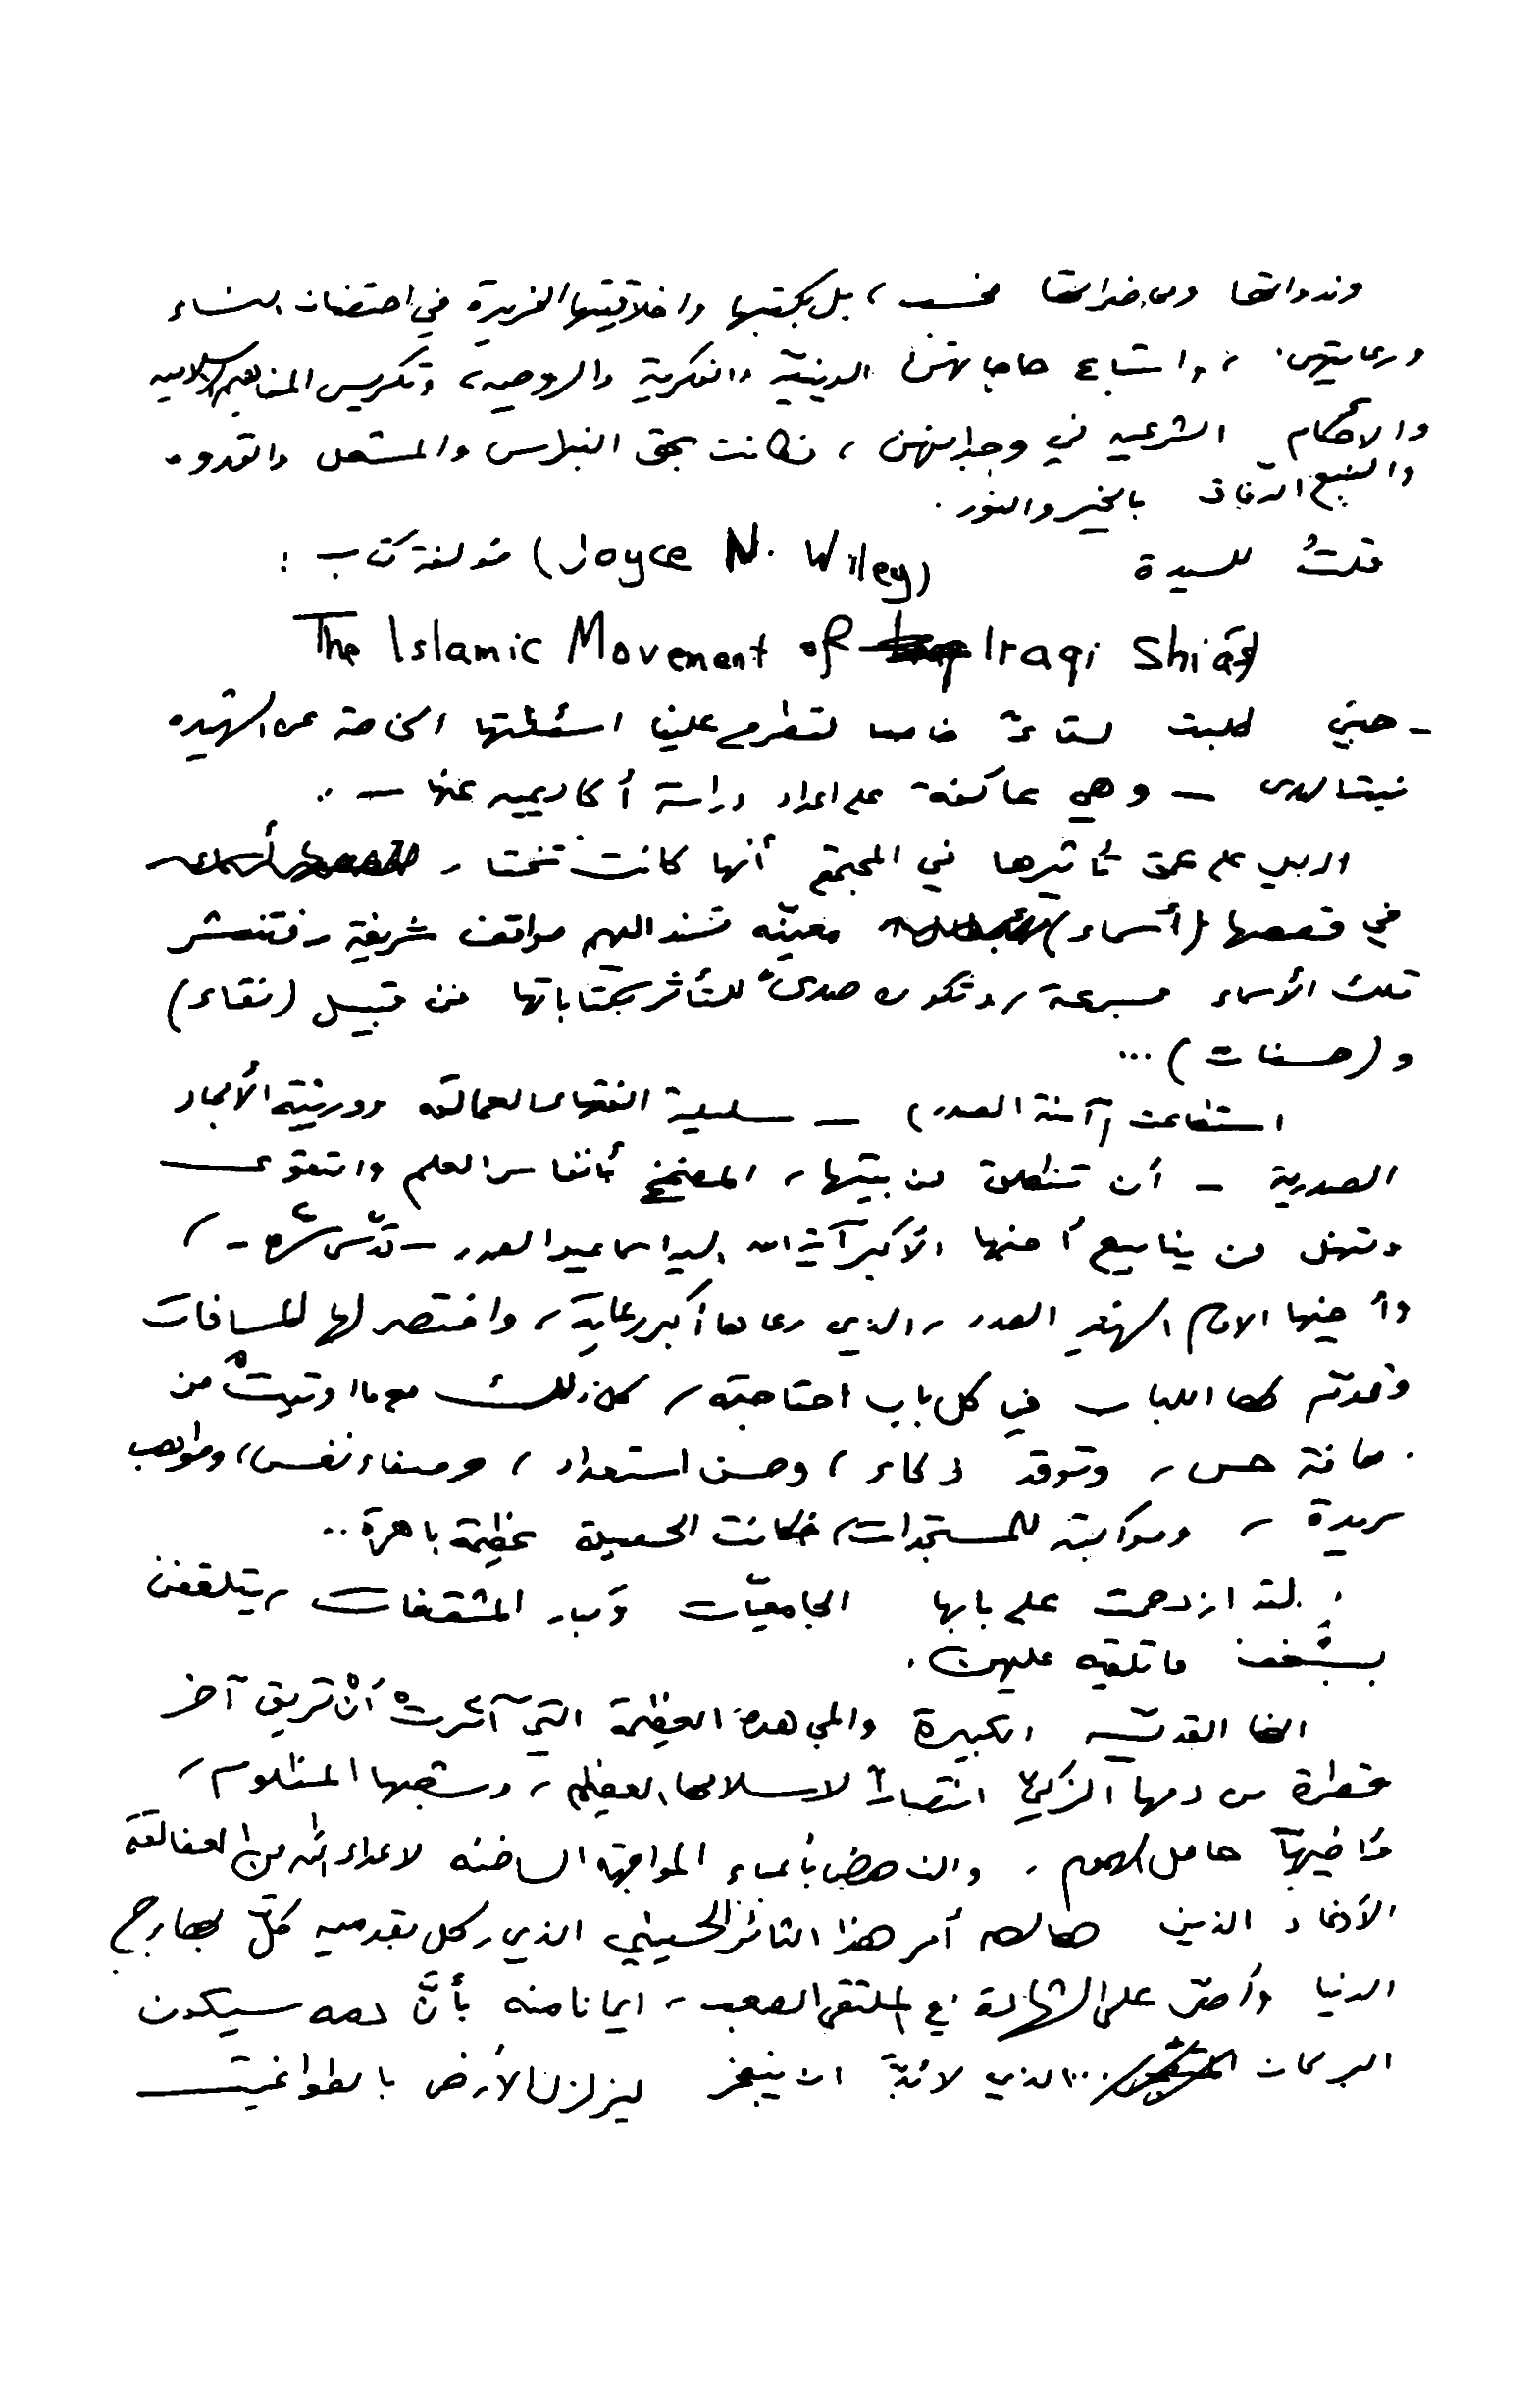 وندواتها ومحاضراتها فحسب، بل بكتبها واخلاقيتها الفريدة في احتضان النساء
ورعايتهن، واشباع حاجاتهن الدينية والفكرية والروحيه، وتكريس المفاهيم الاسلاميه
والاحكام الشرعيه في وجدانهن، فكانت بحق النبراس والمشعل والقدوه
والنبع الدفاق بالخير والنور.
قلتُ للسيدة (Joyce N. Wiley) مؤلفة كتاب:
The Islamic Movement of Iraqi Shi'as
- حين طلبت لقاءً خاصا لتطرح علينا اسئلتها الخاصة عن الشهيده
بنت الهدى - وهي عاكفة على اعداد دراسة أكاديميه عنها - ..
الدليل على عمق تأثيرها في المجتمع أنها كانت تختار
في قصصها (أسماء) معيّنه تسند اليهم مواقف شريفة، فتنتشر
تلك الأسماء بسرعة، وتكون صدىً للتأثر بكتاباتها من قبيل (نقاء)
و (حسنات) ...
استطاعت (آمنة الصدر) - سليلة الفقهاء العمالقه ووريثة الأمجاد
الصدرية - أن تنطلق من بيتها، المضمخ بأنفاس العلم والتقوى
وتنهل من ينابيع أخيها الأكبر آية الله السيد اسماعيل الصدر - قدّس سرّه -،
وأخيها الامام الشهيد الصدر، الذي رعاها أكبر رعاية، واختصر لها المسافات
وقدّم لها اللباب في كل باب احتاجته، كل ذلك مع ما اوتيتْ من
رهافة حس، وتوقد ذكاء، وحسن استعداد، وصفاء نفس، ومواهب
فريدة، ومواكبة للمستجدات، فكانت الحصيلة عظيمة باهرة..
لقد ازدحمت على بابها الجامعيّات وكبار المثقفات، يتلقفن
بشغف ما تلقيه عليهن.
انها القديسه الكبيرة والمجاهدة العظيمة التي آثرتْ أنْ تريق آخر
قطرة من دمها الزكيّ انتصاراً لاسلامها العظيم، وشعبها المظلوم،
وأخيها حامل الهموم، والناهض بأعباء المواجهة الساخنه لاعداء الله من العفالقة
الأوغاد الذين هالهم أمر هذا الثائر الحسيني الذي ركل بقدميه كلّ بهارج
الدنيا وأصرّ على الشهادة في الملتقى الصعب، ايمانا منه بأنَّ دمه سيكون
البركان ... الذي لابدّ ان ينفجر ليزلزل الأرض بالطواغيت